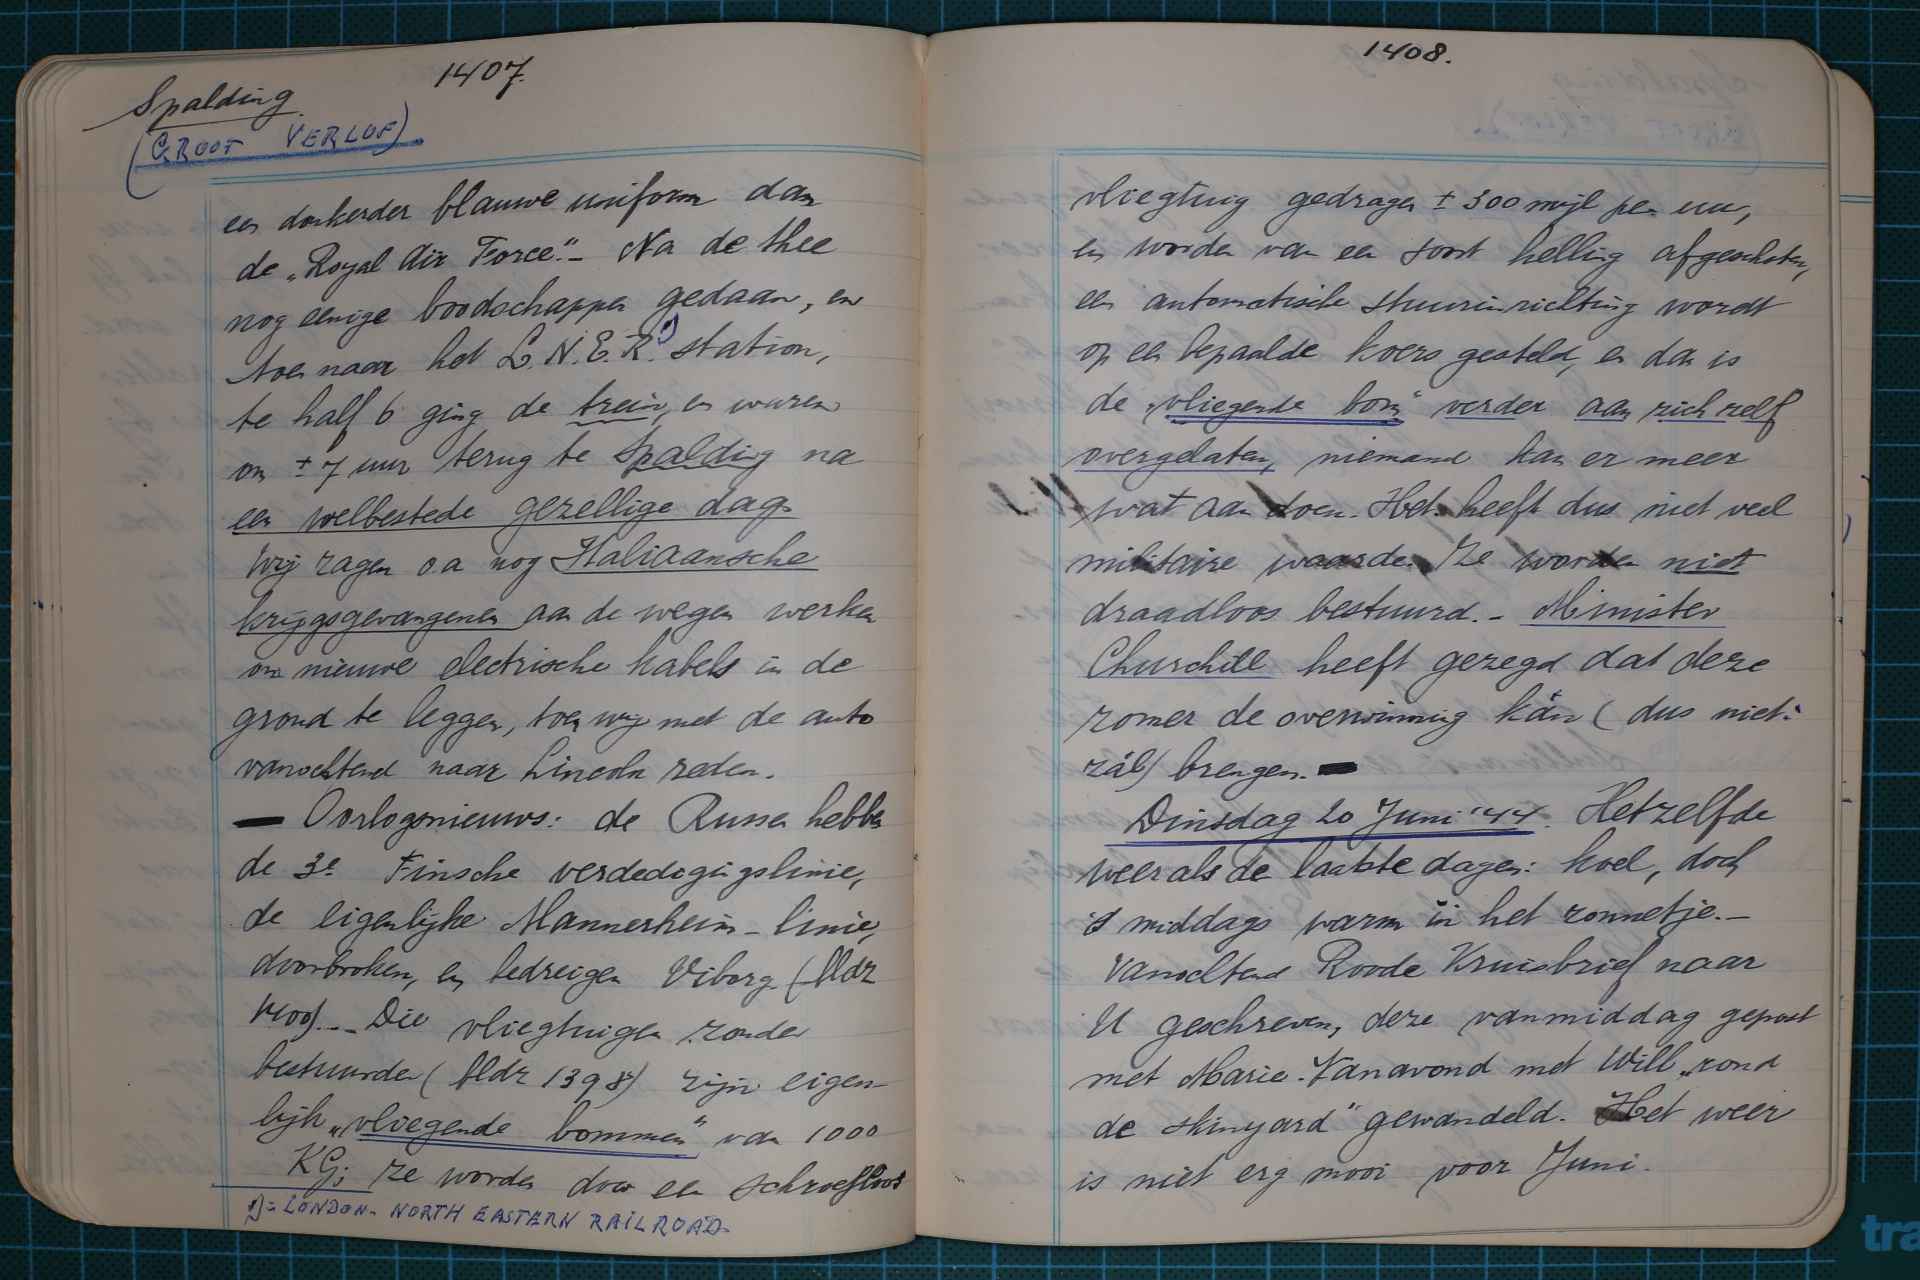 1407.
Spalding
(GROOT VERLOF)
een donkerder blauwe uniform dan
de „Royal Air Force". - Na de thee
nog eenige boodschappen gedaan, en
toen naar het L.N.E.R.¹) station,
te half 6 ging de trein, en waren
om ± 7 uur terug te Spalding na
een welbestede gezellige dag.
Wij zagen o.a nog Italiaansche
krijgsgevangenen aan de wegen werken
om nieuwe electrische kabels in de
grond te leggen, toen wij met de auto
vanochtend naar Lincoln reden.
— Oorlogsnieuws: de Russen hebben
de 3e Finsche verdedigingslinie,
de eigenlijke Mannerheim-linie,
doorbroken, en bedreigen Viborg (bldz
1400). - Die vliegtuigen zonder
bestuurder (bldz 1398) zijn eigen-
lijk „vliegende bommen" van 1000
KG; ze worden door een schroefloos
1) = LONDON - NORTH EASTERN RAILROAD.
1408.
vliegtuig gedragen ± 300 mijl per uur,
en worden van een soort helling afgeschoten,
een automatische stuurinrichting wordt
op een bepaalde koers gesteld, en dan is
de „vliegende bom" verder aan zich zelf
overgelaten, niemand kan er meer
wat aan doen. Het heeft dus niet veel
militaire waarde. Ze worden niet
draadloos bestuurd. - Minister
Churchill heeft gezegd dat deze
zomer de overwinning kán (dus niet:
zál) brengen. —
Dinsdag 20 Juni '44. Hetzelfde
weer als de laatste dagen: koel, doch
's middags warm in het zonnetje. -
Vanochtend Roode Kruisbrief naar
U geschreven, deze vanmiddag gepost
met Marie. Vanavond met Will „rond
de shinyard" gewandeld. Het weer
is niet erg mooi voor Juni.